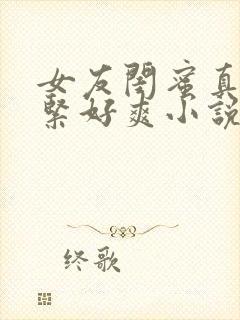 女友閨蜜真
緊好爽小說
终歌